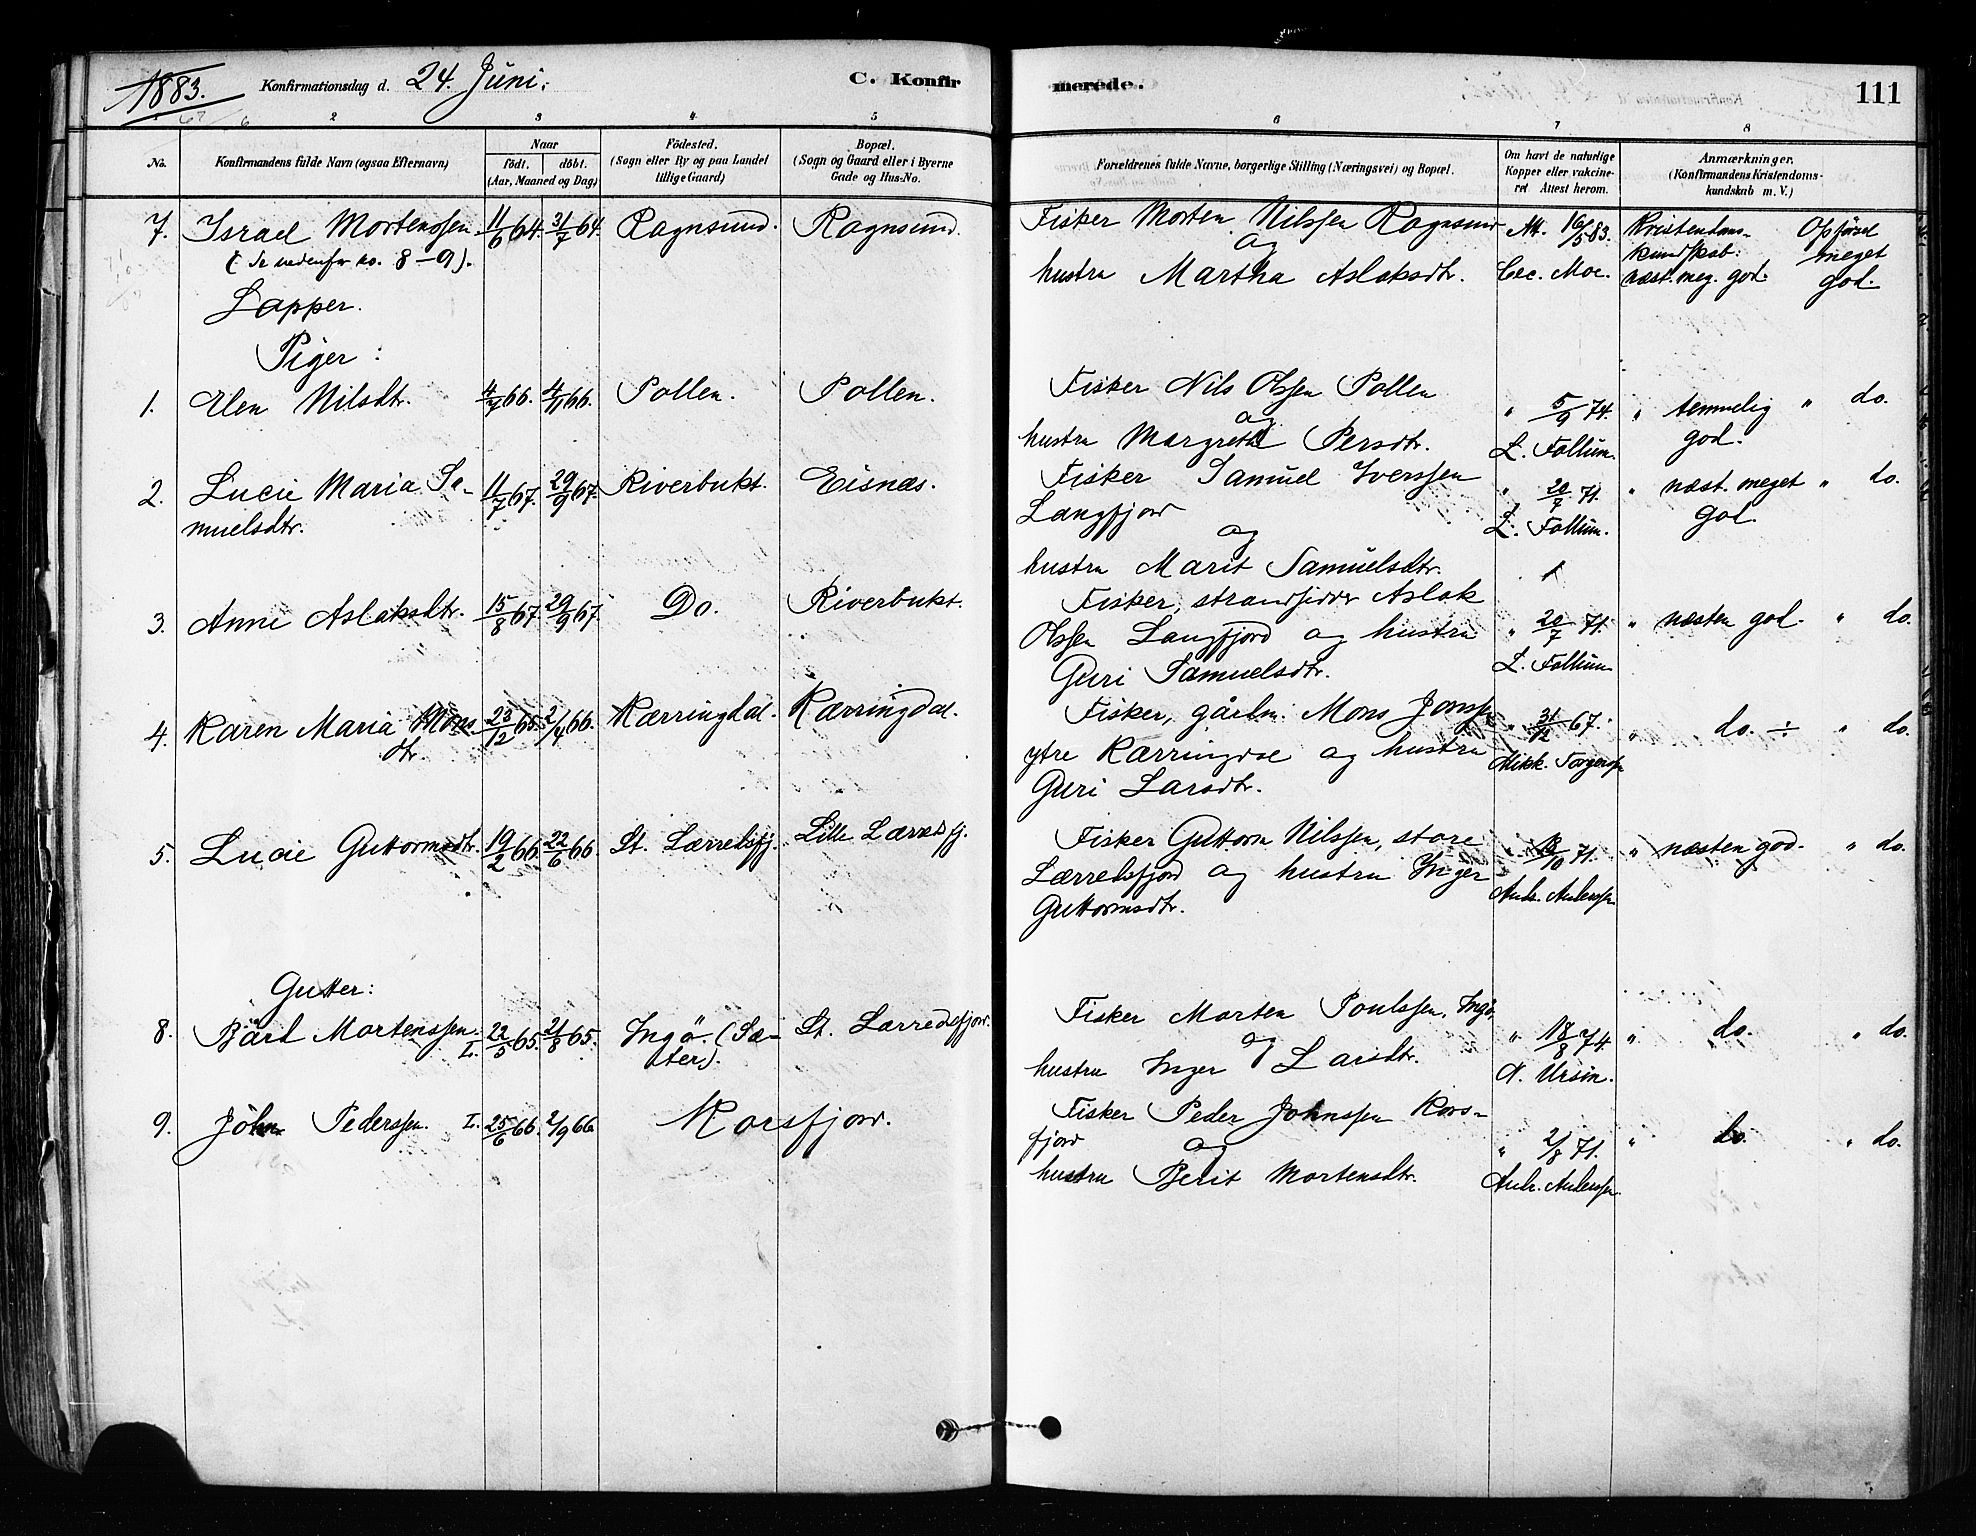 1883. Konfirmationsdag d. 24. Juni. C. Konfir merede. 111
2 3 4 5 6 7 8
No. Konfirmandens fulde Navn (ogsaa Efternavn) Naar født. døbt. (Aar, Maaned og Dag) Fødested. (Sogn eller By og paa Landet tillige Gaard) Bopæl. (Sogn og Gaard eller i Byerne Gade og Hus-No. Forældrenes fulde Navne, borgerlige Stilling (Næringsvei) og Bopæl. Om havt de naturlige Kopper eller vakcineret Attest herom. Anmærkninger. (Konfirmandens Kristendomskundskab m. V.)
7. Israel Mortenssen 11/6 64. 31/7 64. Ragnsund. Ragnsund. Fisker Morten Nilssen Ragnsund Att. 16/5 83. Kristendoms- Opførsel
(se nedenfor no. 8-9). og kundskab: meget
hustru Martha Aslaksdtr. Coc. Moe. næst. meg. god. god.
Lapper.
Piger:
1. Elen Nilsdtr. 4/7 66. 4/11 66. Pollen. Pollen. Fisker Nils Olssen Pollen " 5/9 74. " temmelig " do.
og
hustru Margrethe Persdtr. L. Follum. god.
2. Lucie Maria Sa- 11/7 67. 29/9 67. Riverbukt. Eisnæs. Fisker Samuel Iverssen " 20/7 71. " næst. meget " do.
muelsdtr. Langfjord L. Follum. god.
og
hustru Marit Samuelsdtr.
3. Anne Aslaksdtr. 15/8 67. 29/9 67. Do. Riverbukt. Fisker, strandsidder Aslak
Olssen Langfjord og hustru " 20/7 71. " næsten god. " do.
Guri Samuelsdtr. L. Follum
4. Karen Maria Mons- 23/12 65. 2/4 66. Kærringdal. Kærringdal. Fisker, gårbr. Mons Jonss. " 31/12 67. " do. ÷ " do.
dtr. ytre Kærringdal og hustru Mikk. Torgerss.
Guri Larsdtr.
5. Lucie Guttormsdtr. 19/2 66. 22/6 66. St. Lærredsfj. Lille Lærredsfj. Fisker Guttorm Nilssen, store " 18/10 71. " næsten god. " do.
Lærredsfjord og hustru Inger Andr. Anderss.
Guttormsdtr.
Gutter:
8. Bårt Mortenssen. L. 22/5 65. 2/8 65. Ingö. (Sæ- St. Lærredsfjord. Fisker Morten Poulssen, Ingö, " 18/8 74. " do. " do.
ter). og
hustru Inger Larsdtr. N. Ursin.
9. John Pederssen. L. 25/6 66. 2/9 66. Korsfjord. Fisker Peder Johnssen Kors-
fjord og " 2/8 71. " do. " do.
hustru Berit Mortensdtr. Andr. Anderss.